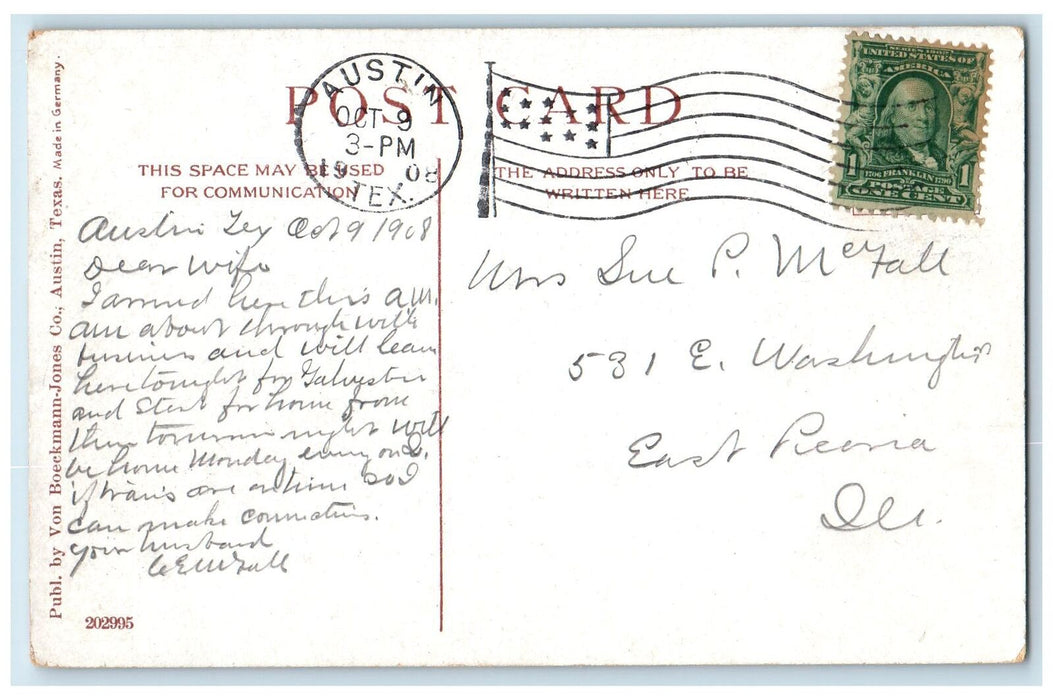 POST CARD
AUSTIN
OCT 9
3-PM
1908
TEX.
SERIES 1902
UNITED STATES OF
AMERICA
1 1
1706 FRANKLIN 1790
POSTAGE
ONE CENT
THIS SPACE MAY BE USED
FOR COMMUNICATION
THE ADDRESS ONLY TO BE
WRITTEN HERE
Austin Tex Oct 9 1908
Dear Wife
I arrived here this a.m.
am about through with
business and will leave
here tonight for Galveston
and start for home from
there tomorrow night will
be home Monday
if trains are on time so I
can make connections.
your husband
McFall
Mrs Sue P. McFall
531 E. Washington
East Peoria
Ill.
Publ. by Von Boeckmann-Jones Co., Austin, Texas. Made in Germany.
202995